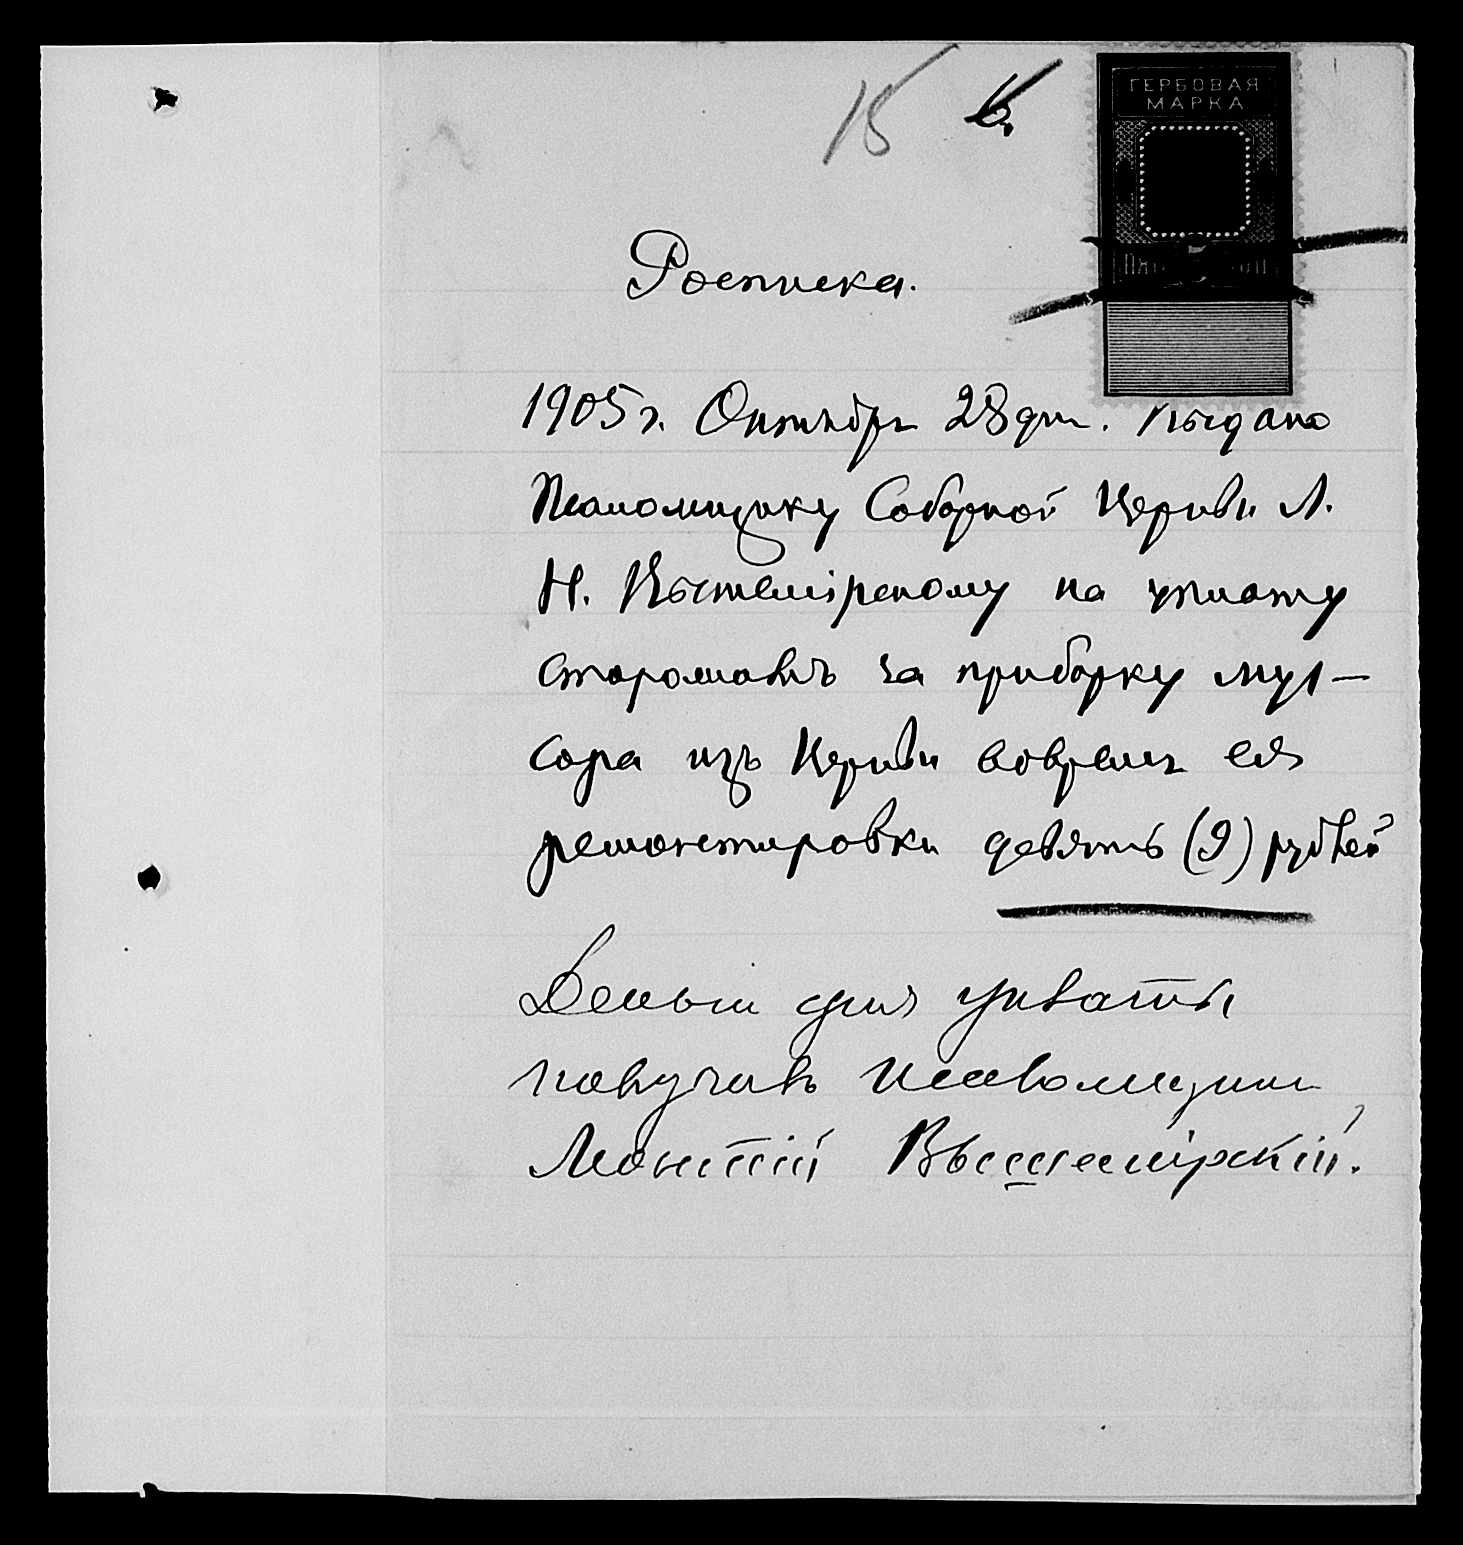 15 6.
ГЕРБОВАЯ
МАРКА
Росписка.
1905 г. Октября 28 дня. Выдана
Псаломщику Соборной Церкви Л.
Н. Вышемірскому на уплату
сторожамъ за приборку му-
сора изъ Церкви вовремя ея
ремонтировки девять (9) рублей
Деньги для уплаты
получилъ Псаломщикъ
Леонтій Вышемірскій.